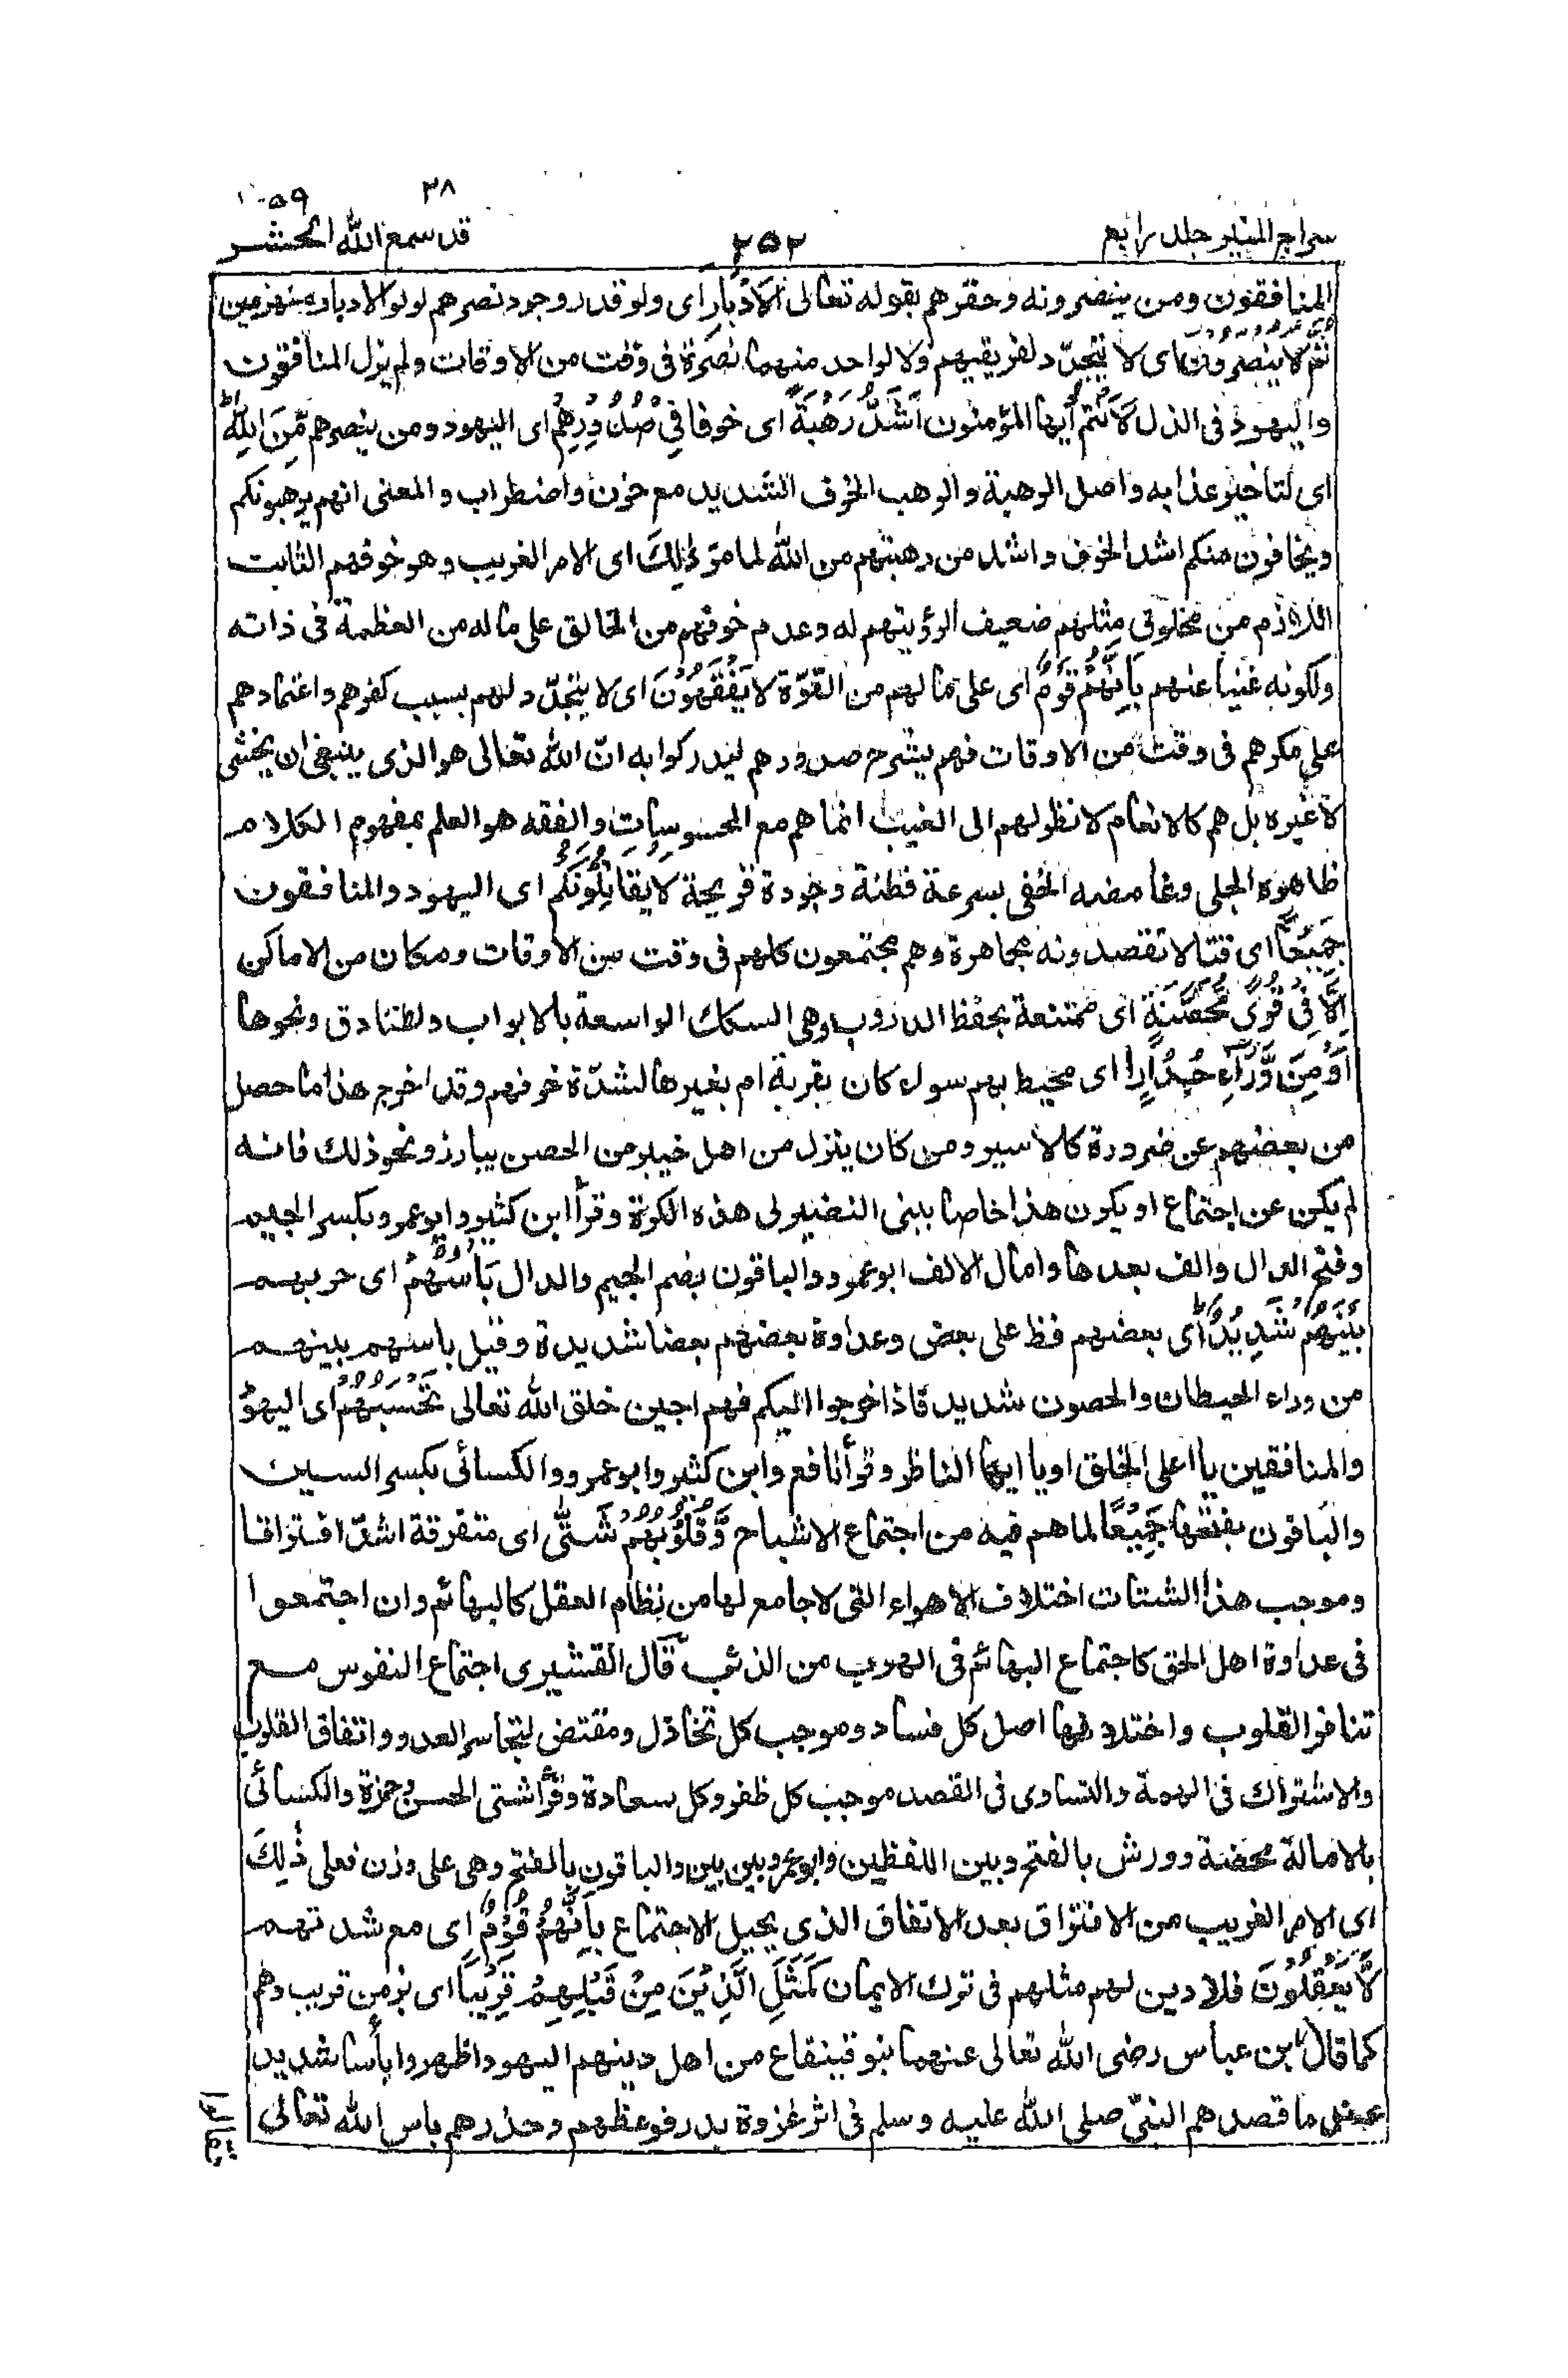 ٢٨ ٥٩
سراج المنير جلد رابع ٢٥٢ قد سمع الله الحشر
المنافقون ومن ينصرونه وحقرهم بقوله تعالى الْاَدْبَارَ اى ولو قدر وجود نصرهم لولوا الادبار منهزمين
ثُمَّ لَا يُنْصَرُوْنَ اى لا يتجدّد لفريقيهم ولا لواحد منهما نصرة فى وقت من الاوقات ولم يزل المنافقون
واليهود فى الذل لَاَنْتُمْ ايها المؤمنون اَشَدُّ رَهْبَةً اى خوفا فِيْ صُدُوْرِهِمْ اى اليهود ومن ينصرهم مِّنَ اللّٰهِ ط
اى لتاخير عذابه واصل الرهبة والرهب الخوف الشديد مع حزن واضطراب والمعنى انهم يرهبونكم
ويخافون منكم اشد الخوف واشد من رهبتهم من الله لما مرّ ذٰلِكَ اى الامر الغريب وهو خوفهم الثابت
اللازم من مخلوق مثلهم ضعيف لرؤيتهم له وعدم خوفهم من الخالق على ما له من العظمة فى ذاته
ولكونه غنيا عنهم بِاَنَّهُمْ قَوْمٌ اى على ما لهم من القوّة لَا يَفْقَهُوْنَ اى لا يتجدّد لهم بسبب كفرهم واعتمادهم
على مكرهم فى وقت من الاوقات فهم يشرح صدورهم ليدركوا به انّ الله تعالى هو الذى ينبغى ان يخشى
لا غيره بل هم كالانعام لا نظر لهم الى الغيب انما هم مع المحسوسات والفقه هو العلم بمفهوم الكلام
ظاهره الجلى وغامضه الخفى بسرعة فطنة وجودة قريحة لَا يُقَاتِلُوْنَكُمْ اى اليهود والمنافقون
جَمِيْعًا اى قتالا تقصدونه مجاهرة وهم مجتمعون كلهم فى وقت من الاوقات ومكان من الاماكن
اِلَّا فِيْ قُرًى مُّحَصَّنَةٍ اى ممتنعة بحفظ الدروب وهى السكك الواسعة بالابواب والخنادق ونحوها
اَوْ مِنْ وَّرَآءِ جُدُرٍ اى محيط بهم سواء كان بقرية ام بغيرها لشدّة خوفهم وقد اخرج هذا ما حصل
من بعضهم عن ضرورة كالاسير ومن كان ينزل من اهل خيبر من الحصن يبارز ونحو ذلك فانه
لم يكن عن اجتماع او يكون هذا خاصا ببنى النضير فى هذه الكرة وقرأ ابن كثير وابو عمرو بكسر الجيم
وفتح الدال والف بعدها وامال الالف ابو عمرو والباقون بضم الجيم والدال بَاْسُهُمْ اى حربهم
بَيْنَهُمْ شَدِيْدٌ ط اى بعضهم فظ على بعض وعداوة بعضهم بعضا شديدة وقيل باسهم بينهم
من وراء الحيطان والحصون شديد فاذا خرجوا اليكم فهم اجبن خلق الله تعالى تَحْسَبُهُمْ اى اليهود
والمنافقين يا اعلى الخلق او يا ايها الناظر وقرأ نافع وابن كثير وابو عمرو والكسائى بكسر السين
والباقون بفتحها جَمِيْعًا لما هم فيه من اجتماع الاشباح وَّقُلُوْبُهُمْ شَتّٰى اى متفرقة اشدّ افتراقا
وموجب هذا الشتات اختلاف الاهواء التى لا جامع لها من نظام العقل كالبهائم وان اجتمعوا
فى عداوة اهل الحق كاجتماع البهائم فى الهرب من الذئب قال القشيرى اجتماع النفوس مع
تنافر القلوب واختلافها اصل كل فساد وموجب كل تخاذل ومقتض لتجاسر العدو واتفاق القلوب
والاشتراك فى الهمة والتساوى فى القصد موجب كل ظفر وكل سعادة وقرأ شتى الحسن وحمزة والكسائى
بالامالة محضة وورش بالفتح وبين اللفظين وابو عمرو بين بين والباقون بالفتح وهى على وزن فعلى ذٰلِكَ
اى الامر الغريب من الافتراق بعد الاتفاق الذى يحيل الاجتماع بِاَنَّهُمْ قَوْمٌ اى مع شدتهم
لَّا يَعْقِلُوْنَ فلا دين لهم مثلهم فى ترك الايمان كَمَثَلِ الَّذِيْنَ مِنْ قَبْلِهِمْ قَرِيْبًا اى بزمن قريب وهم
كما قال ابن عباس رضى الله تعالى عنهما بنو قينقاع من اهل دينهم اليهود اظهروا بأسا شديدا
ما قصدهم النبىّ صلى الله عليه وسلم فى اثر غزوة بدر فوعظهم وحذرهم باس الله تعالى
فقالوا